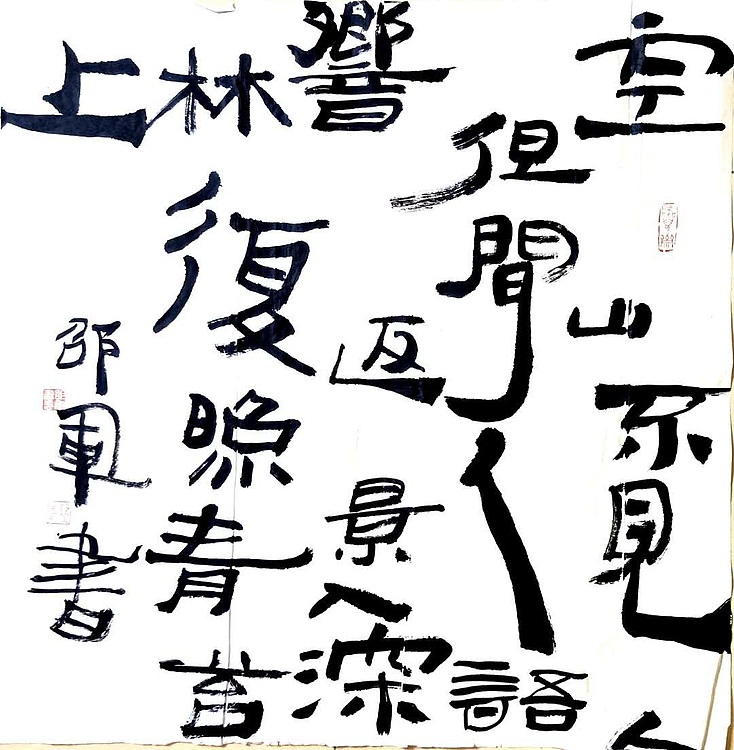 空山不見人
但聞人語
響返景入深
林復照青苔
上
邵軍書